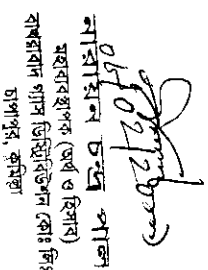 নারায়ন চন্দ্র পাল
মহাব্যবস্থাপক (অর্থ ও হিসাব)
বাখরাবাদ গ্যাস ডিষ্ট্রিবিউশন কোঃ লিঃ
চাপাপুর, কুমিল্লা